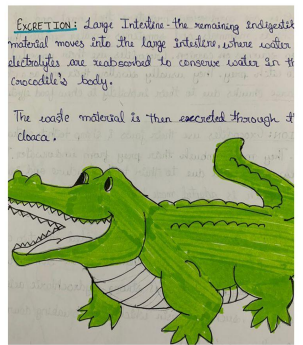 EXCRETION: Large Intestine - the remaining indigestib
material moves into the large intestine, where water
electrolytes are reabsorbed to conserve water in th
Crocodile's body.
The waste material is then excreted through t
cloaca.